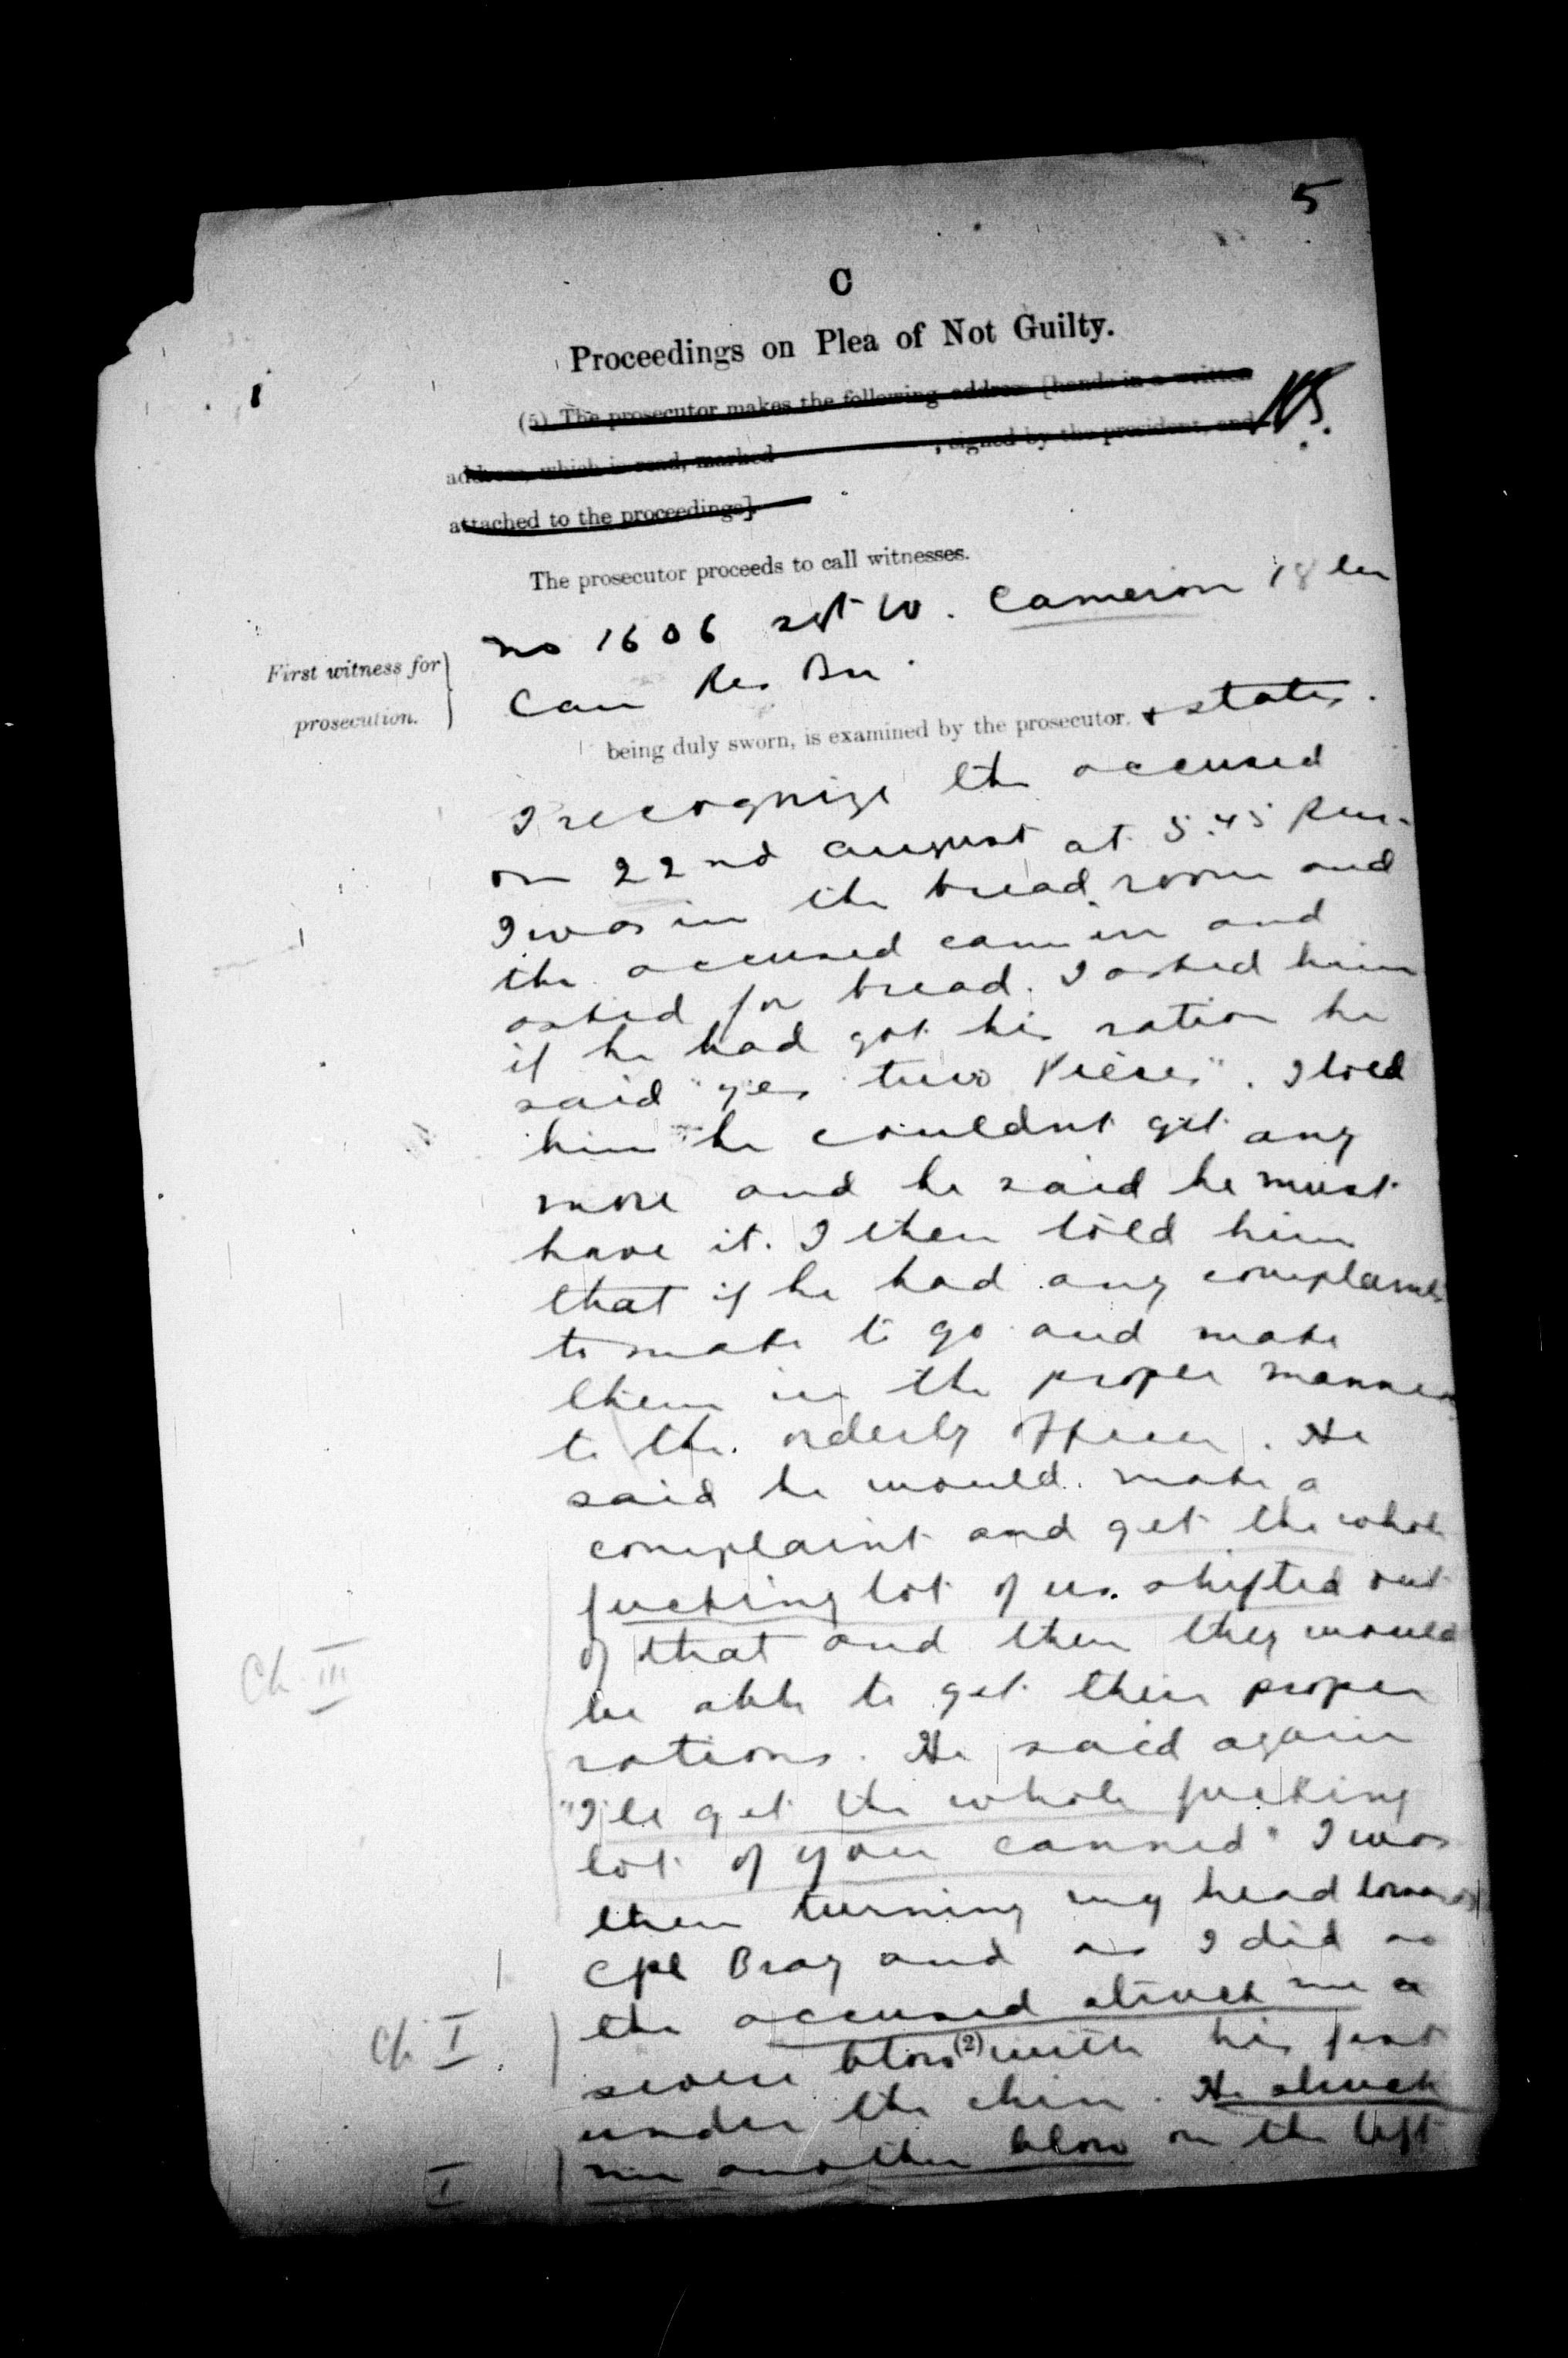 5
C
Proceedings on Plea of Not Guilty.
(5) The prosecutor makes the following address [hands in a written
address, which is read, marked , signed by the president, and
attached to the proceedings].
The prosecutor proceeds to call witnesses.
First witness for
prosecution.
No 1606 Sgt W. Cameron 18th
Can Res Bn.
being duly sworn, is examined by the prosecutor. + states.
I recognize the accused
on 22nd August at 5.45 p.m.
I was in the bread room and
the accused came in and
asked for bread. I asked him
if he had got his ration he
said "yes two Pieces". I told
him he couldnt get any
more and he said he must
have it. I then told him
that if he had any complaints
to make to go and make
them in the proper manner
to the orderly officer. He
said he would make a
complaint and get the whole
fucking lot of us shifted out
Ch. III
of that and then they would
be able to get their proper
rations. He said again
"I'll get the whole fucking
lot of you canned" I was
then turning my head towards
Cpl Bray and as I did so
Ch I
the accused struck me a
severe blow (2) with his fist
under the chin. He struck
I
me another blow on the left